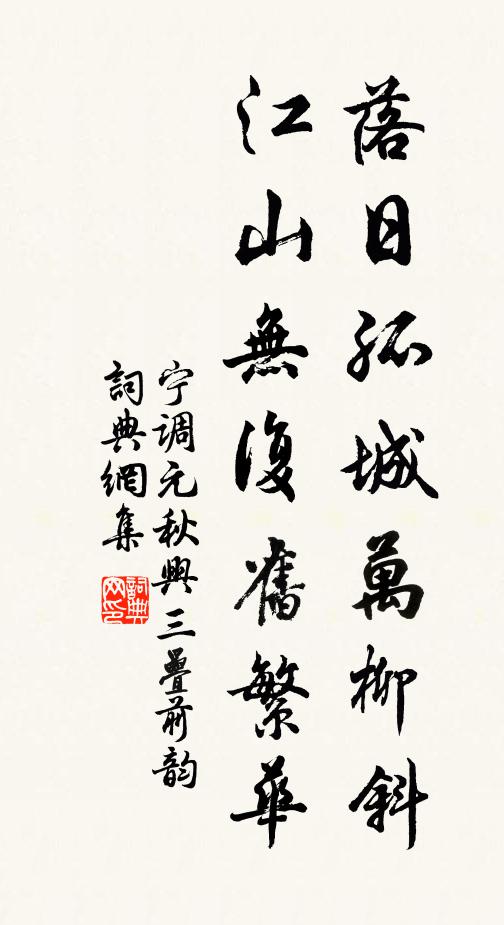 落日孤城萬柳斜
江山無復舊繁華
宁调元秋興三疊前韵
詞典網集
詞典网印